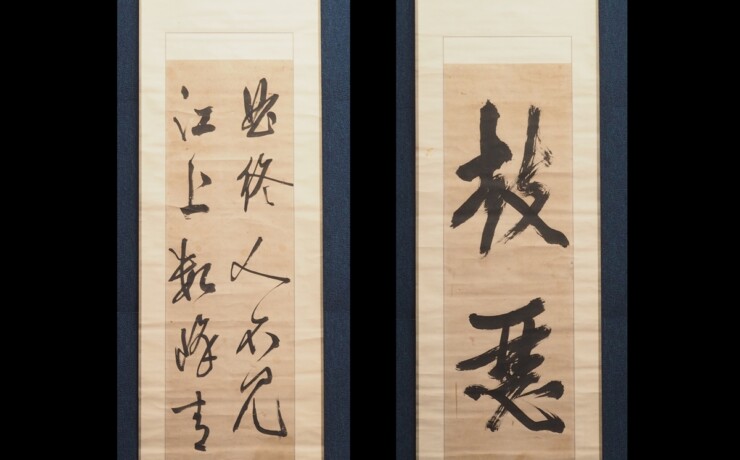 鼓瑟
曲終人不見
江上數峰青